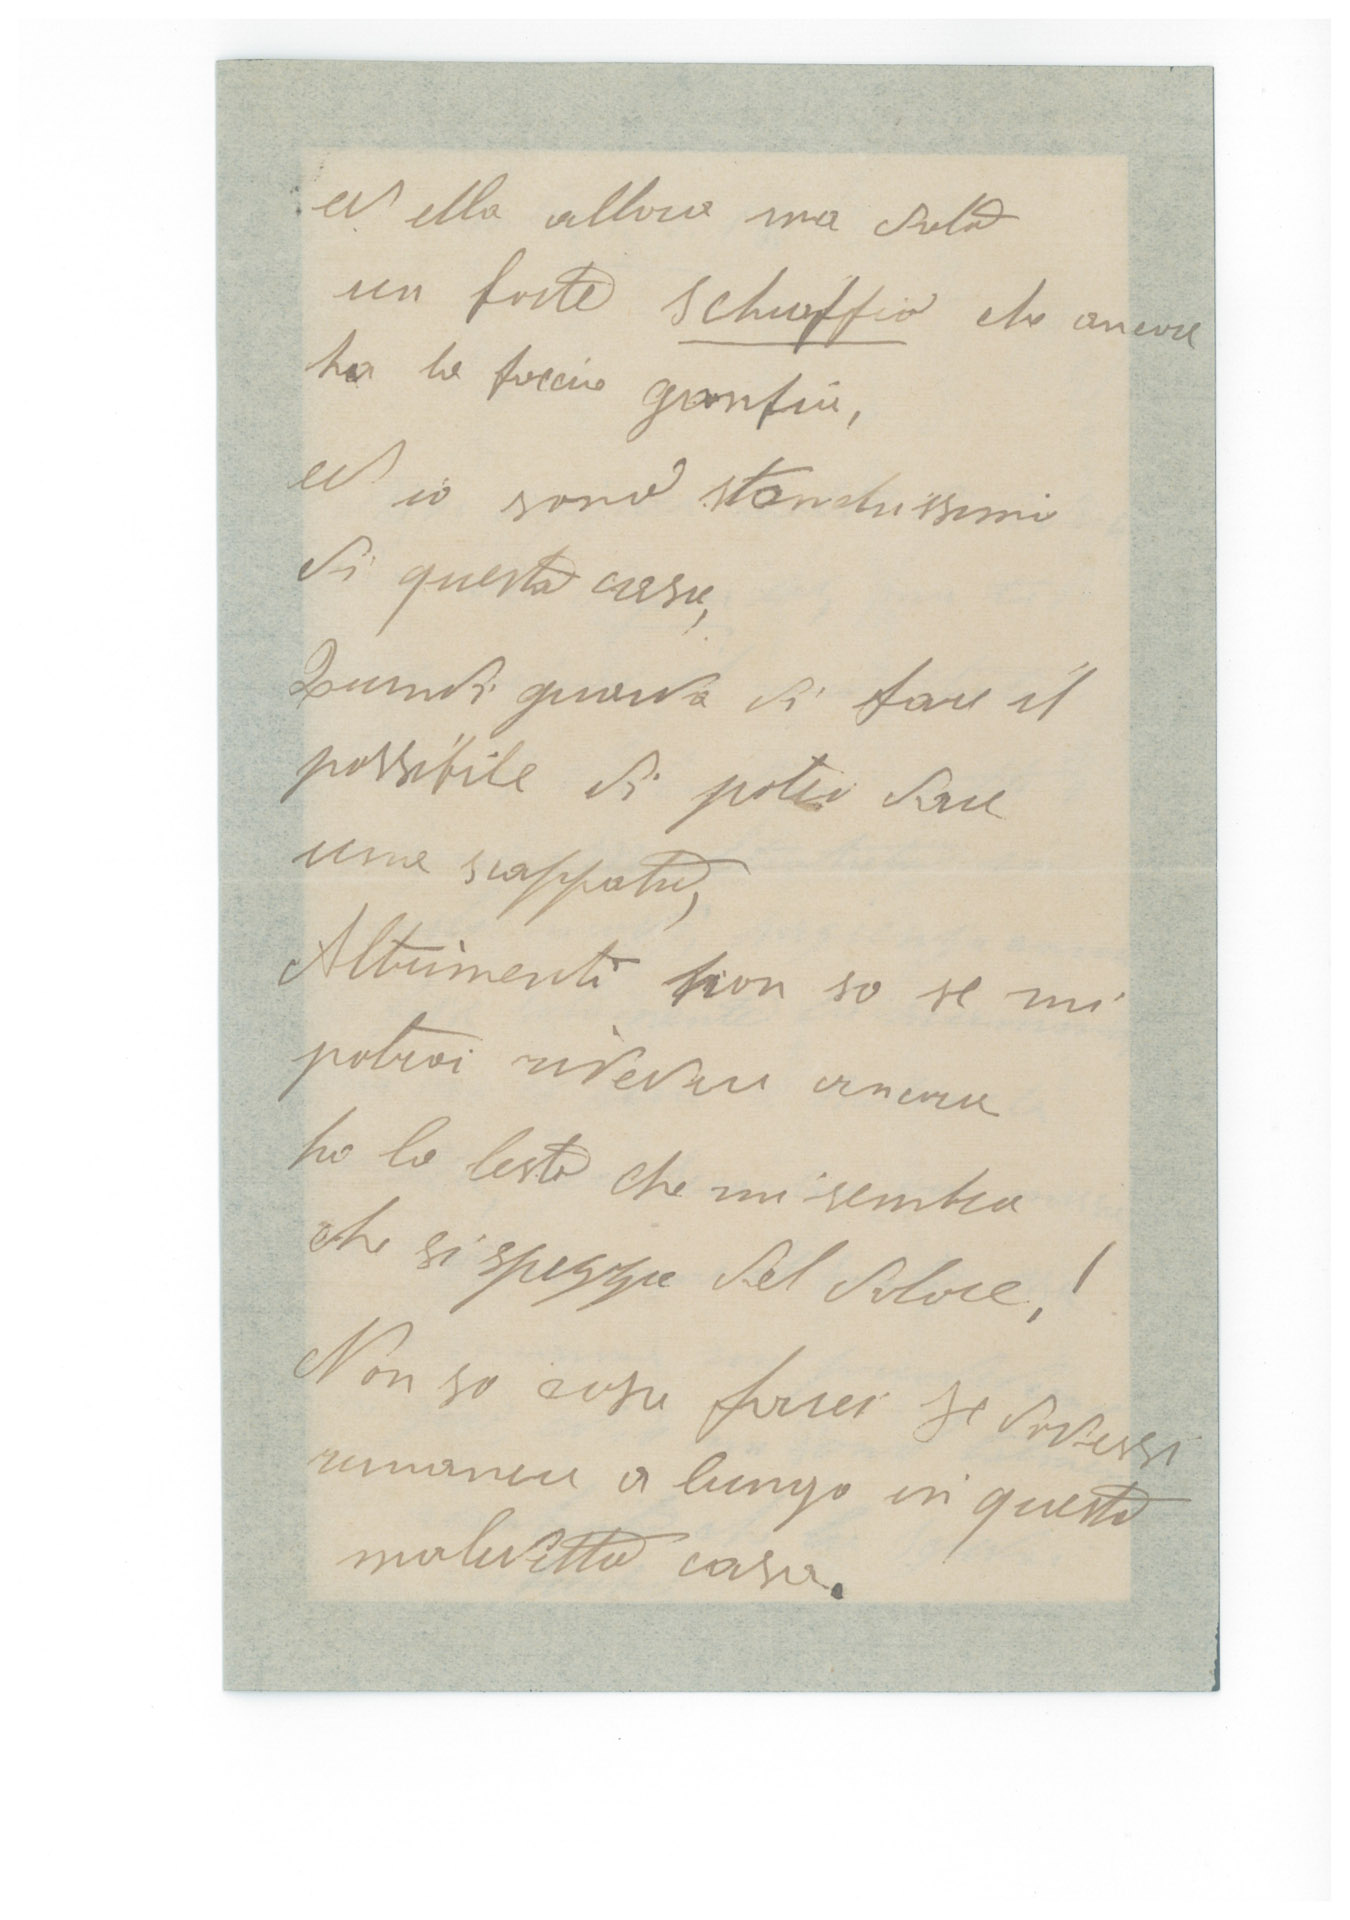 ed ella allora ma dato
un forte schiaffio che ancora
ho la faccia gonfia,
ed io sono stanchissimo
di questa casa,
Quindi guarda di fare il
possibile di poter dare
una scappata,
Altrimenti non so se mi
potrai rivedere ancora
ho la testa che mi sembra
che si spezza del dolore,!
Non so cosa farei se dovessi
rimanere a lungo in questa
maledetta casa.